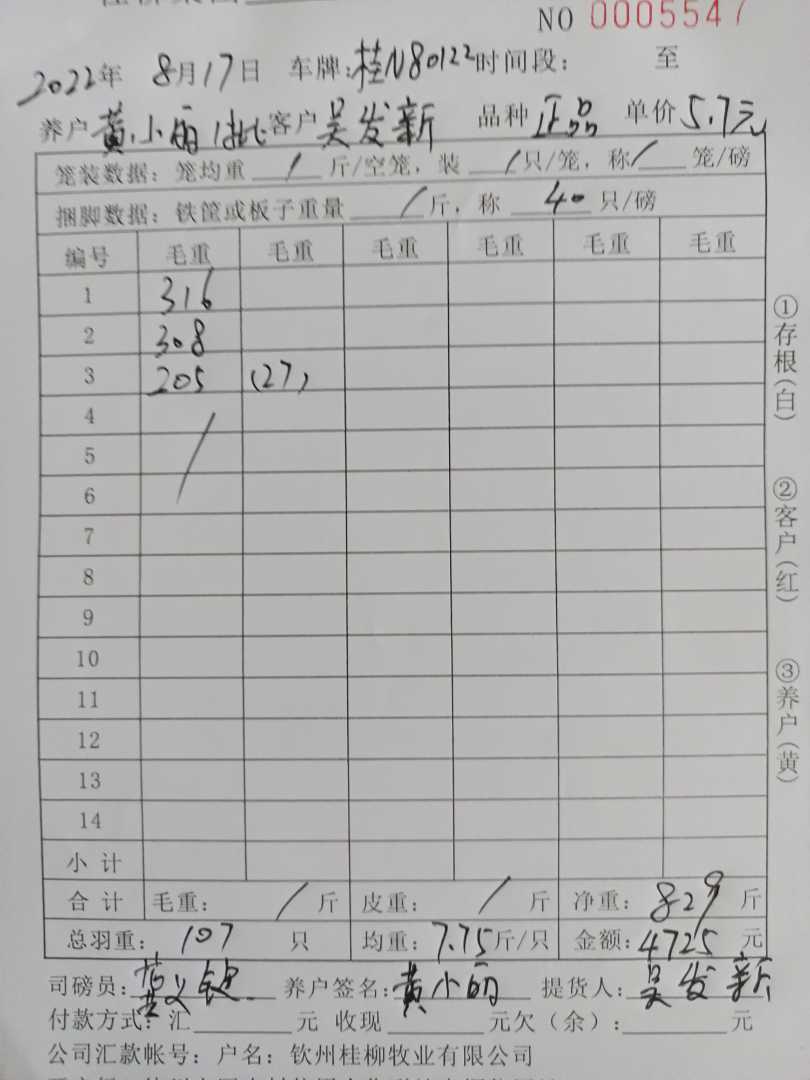 NO 0005547
2022年 8月17日 车牌:桂N80122时间段: 至
养户黄小丽1批客户吴发新 品种正品 单价5.7元
笼装数据: 笼均重 / 斤/空笼, 装 / 只/笼, 称 / 笼/磅
捆脚数据: 铁筐或板子重量 / 斤, 称 40 只/磅
编号 毛重 毛重 毛重 毛重 毛重 毛重
1 316
2 308
3 205 (27)
4
5
6
7
8
9
10
11
12
13
14
小 计
合 计 毛重: / 斤 皮重: / 斤 净重: 829 斤
总羽重: 107 只 均重: 7.75斤/只 金额:4725 元
司磅员: 养户签名:黄小丽 提货人:吴发新
付款方式: 汇 元 收现 元欠(余): 元
公司汇款帐号: 户名: 钦州桂柳牧业有限公司
①存根(白)
②客户(红)
③养户(黄)